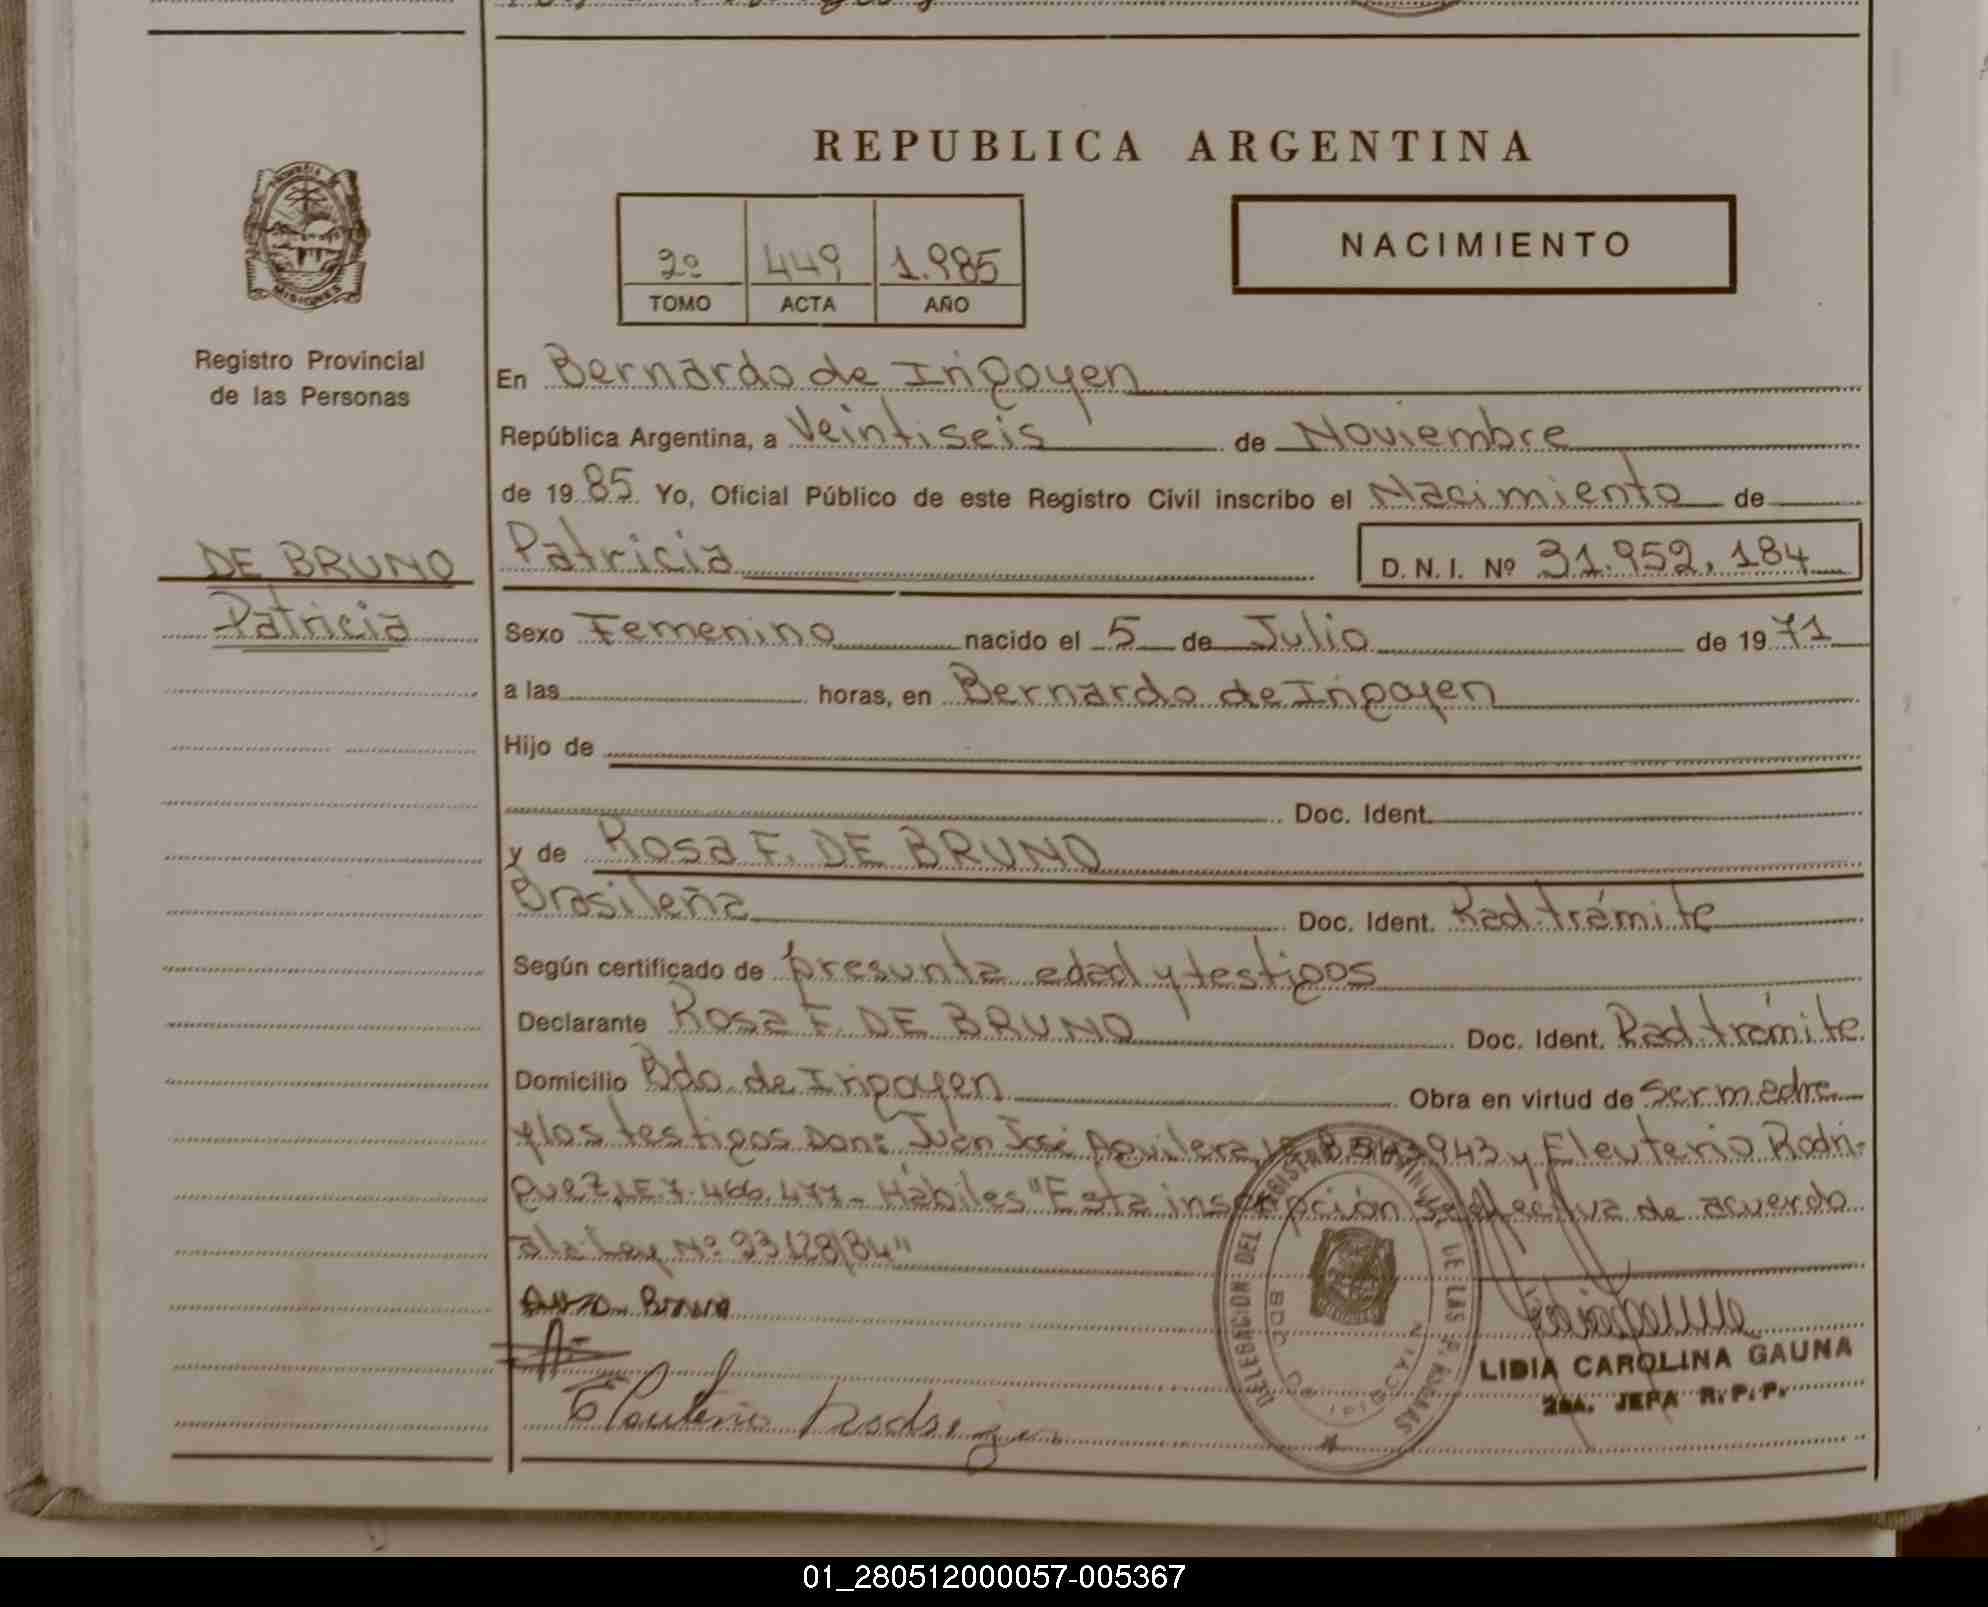 REPUBLICA ARGENTINA
NACIMIENTO
2º 449 1.985
TOMO ACTA AÑO
MISIONES
Registro Provincial
de las Personas
DE BRUNO
Patricia
En Bernardo de Irigoyen
República Argentina, a Veintiseis de Noviembre
de 1985 Yo, Oficial Público de este Registro Civil inscribo el Nacimiento de
Patricia D. N. I. Nº 31.952.184
Sexo Femenino nacido el 5 de Julio de 1971
a las horas, en Bernardo de Irigoyen
Hijo de
Doc. Ident.
y de Rosa F. DE BRUNO
Brasileña Doc. Ident. Rad. trámite
Según certificado de presunta edad y testigos
Declarante Rosa F. DE BRUNO Doc. Ident. Rad. trámite
Domicilio Bdo. de Irigoyen Obra en virtud de ser madre
y los testigos Don: Juan José Aguilera, 943 y Eleuterio Rodri-
guez, LE 7.466.477- Hábiles "Esta inscripción se efectiva de acuerdo
a la Ley Nº 23128/84"
Bruno
Eleuterio Rodriguez
DELEGACION DEL REGISTRO PROVINCIAL DE LAS PERSONAS
BDO DE IRIGOYEN
LIDIA CAROLINA GAUNA
2da. JEFA R. P. P.
01_280512000057-005367